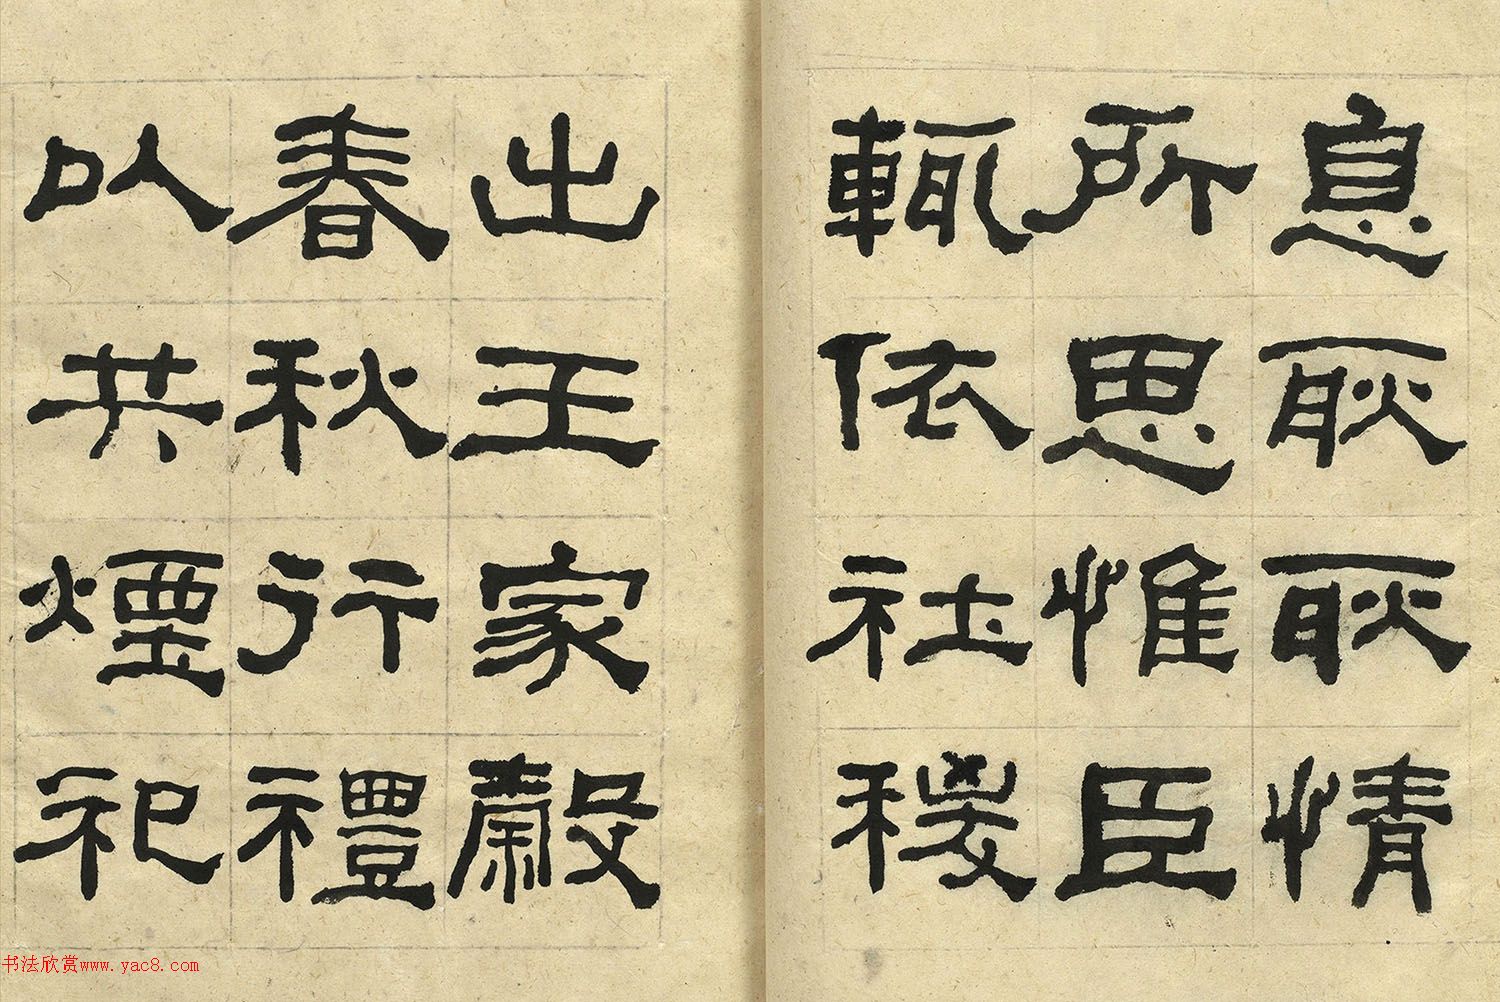 息耿耿情
所思惟臣
輒依社稷
出王家穀
春秋行禮
以共煙祀
书法欣赏www.yac8.com